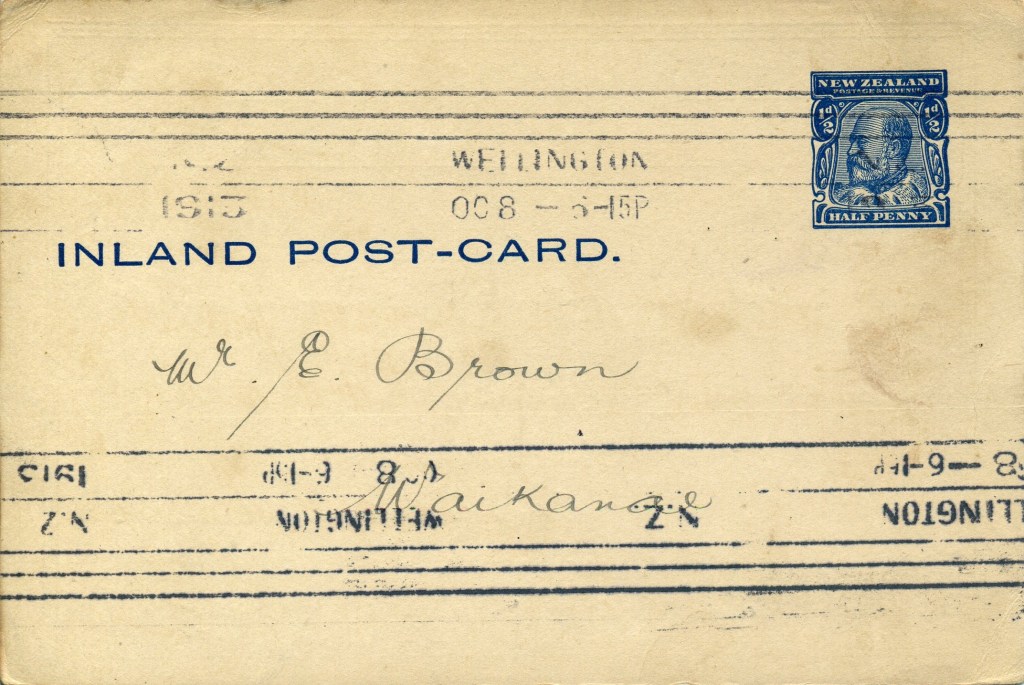 NEW ZEALAND
POSTAGE & REVENUE
½d ½d
HALF PENNY
N.Z WELLINGTON
1913 OC 8 — 6-15P
INLAND POST-CARD.
Mr. E. Brown
Waikanae
8 — 6-15P
LLINGTON
N.Z
OC 8 6-15P
WELLINGTON
1913
N.Z